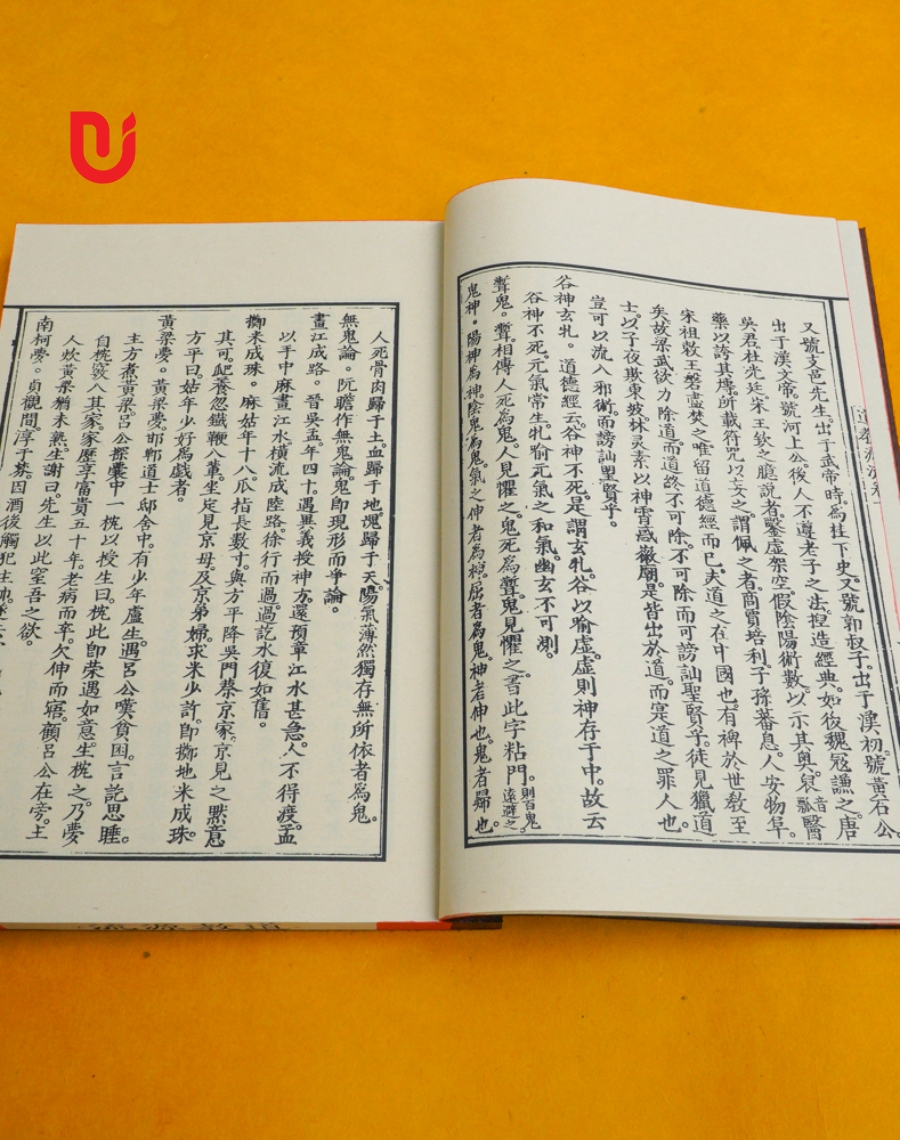 道教源流卷
又號支邑先生。出于武帝時爲柱下史。又號郭叔子。出于漢初。號黃石公
出于漢文帝。號河上公。後人不遵老子之法。捏造經典。如後魏冦謙之。唐
吳君杜光廷。宋王欽之臆說者。鑿虛架空。假陰陽術數。以示其奥。音瓢醫
藥以誇其所載符咒以妄文之。謂佩之者。商賈培利。子孫蕃息。人安物阜。
宋祖敕王磐盡焚之。唯留道德經而已。夫道之在中國也。有裨於世敎至
矣。故梁武欲力除道。而道終不可除。不可除而可謗訕聖賢乎。徒見獵道
士。以子夜欺東坡。林灵素以神霄惑徽廟。是皆出於道。而寔道之罪人也。
豈可以流入邪術。而謗訕聖賢乎。
谷神玄牝。道德經云。谷神不死。是謂玄牝。谷以喻虛。虛則神存于中。故云
谷神不死。元氣常生。牝喻元氣之和氣。幽玄不可測。
聻鬼。聻。相傳人死爲鬼。人見懼之。鬼死爲聻。鬼見懼之。書此字粘門。則百鬼遠避之。
鬼神。陽神爲神。陰鬼爲鬼。氣之伸者爲神。屈者爲鬼。神者伸也。鬼者歸也。
人死骨肉歸于土。血歸于地。魂歸于天。陽氣薄然獨存無所依者爲鬼。
無鬼論。阮瞻作無鬼論。鬼即現形而爭論。
畫江成路。晉吳孟。年四十。遇異義授神方。還預章江水甚急。人不得疫。孟
以手中麻畫江水橫流成陸路。徐行而過。過訖水復如舊。
擲米成珠。麻姑年十八。爪指長數寸。與方平降吳門蔡京家。京見之。黙意
其可爬癢。忽鐵鞭八萬。坐定見京母。及京弟婦。求米少許。即擲地米成珠。
方平曰。姑年少好爲戲者。
黃梁夢。黃梁夢。邯鄲道士。邸舍中。有少年盧生。遇呂公嘆貧困。言訖思睡。
主方煮黃梁。呂公探囊中一枕以授生。曰。枕此即荣遇如意。生枕之。乃夢
自枕竅入其家。家歷享富貴五十年。老病而卒。欠伸而寤。顧呂公在旁。主
人炊黃梁猶未熟。生謝曰。先生以此窒吾之欲。
南柯夢。貞觀間。淳于棼。因酒後觸犯主帥。
道教源流